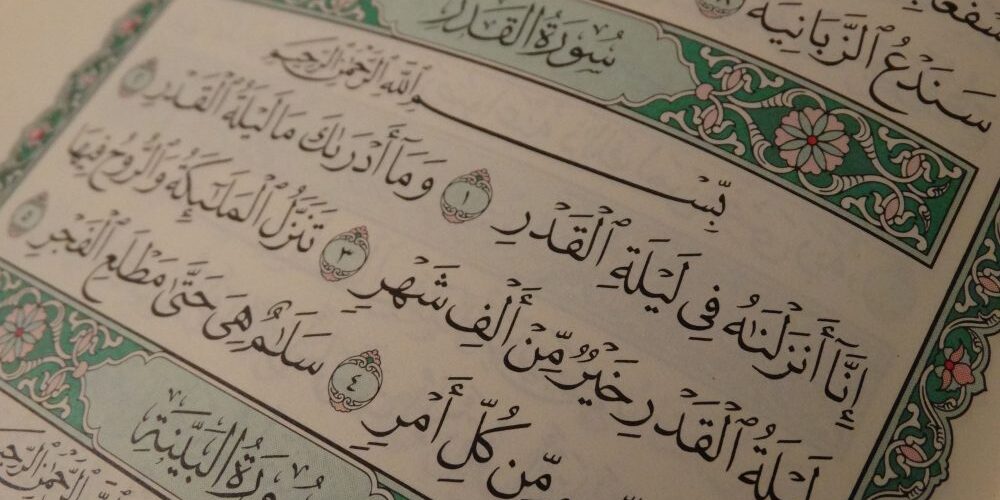 سَنَدْعُ ٱلزَّبَانِيَةَ ١٨
سُورَةُ القَدْرِ
بِسْمِ ٱللَّهِ ٱلرَّحْمَٰنِ ٱلرَّحِيمِ
إِنَّآ أَنزَلْنَٰهُ فِى لَيْلَةِ ٱلْقَدْرِ ١ وَمَآ أَدْرَىٰكَ مَا لَيْلَةُ ٱلْقَدْرِ ٢
لَيْلَةُ ٱلْقَدْرِ خَيْرٌ مِّنْ أَلْفِ شَهْرٍ ٣ تَنَزَّلُ ٱلْمَلَٰٓئِكَةُ وَٱلرُّوحُ فِيهَا
مِّن كُلِّ أَمْرٍ ٤ سَلَٰمٌ هِىَ حَتَّىٰ مَطْلَعِ ٱلْفَجْرِ ٥
سُورَةُ البَيِّنَةِ
ٱللَّهِ ٱلرَّحْمَٰنِ ٱلرَّحِيمِ